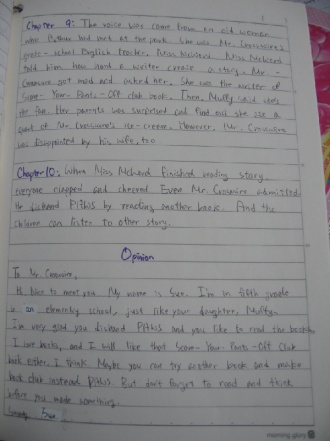 Chapter 9: The voice was came from an old woman
when Pithus had met at the park. She was Mr. Crosswire's
school English teacher, Miss McWard. Miss McWard
told him how hard a writer create a story. Mr.
Crosswire got mad and asked her. She was the writer of
Scare-Your-Pants-Off club book. Then, Muffy said she's
the fan. Her parents was surprised and find out she ate a
of Mr. Crosswire's ice-cream. However, Mr. Crosswire
was disappointed by his wife, too.
Chapter 10: When Miss McWard finished reading story,
everyone clapped and cheered. Even Mr. Crosswire admitted.
He disband PIThis by reading another book. And the
children can listen to other story.
Opinion
To Mr. Crosswire,
Hi. Nice to meet you. My name is Sue. I'm in fifth grade
in an elementary school, just like your daughter, Muffy.
I'm very glad you disband PIThis and you like to read the book.
I love books, and I will like that Scare-Your-Pants-Off Club
book either. I think Maybe you can try another book and make
book club instead PIThis. But don't forget to read and think
before you made something.
Sue
morning glory